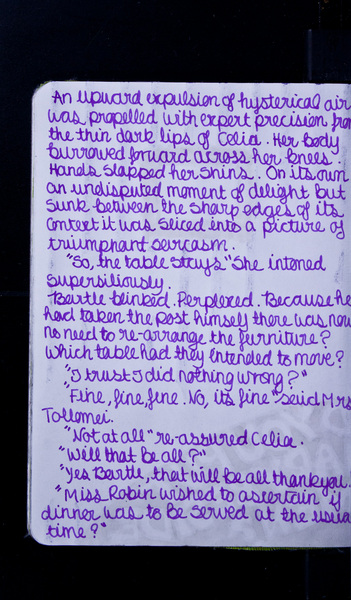 An upward expulsion of hysterical air
was propelled with expert precision from
the thin dark lips of Celia. Her body
burrowed forward across her knees.
Hands slapped her shins. On its own
an undisputed moment of delight but
sunk between the sharp edges of its
context it was sliced into a picture of
triumphant sarcasm.
"So, the table stays." She intoned
supersiliously.
Bartle blinked. Perplexed. Because he
had taken the post himself there was now
no need to re-arrange the furniture?
Which table had they intended to move?
"I trust I did nothing wrong?"
"Fine, fine, fine. No, its fine" said Mrs
Tollomei.
"Not at all" re-assured Celia.
"Will that be all?"
"Yes Bartle, that will be all thankyou.
"Miss Robin wished to ascertain if
dinner was to be served at the usual
time?"